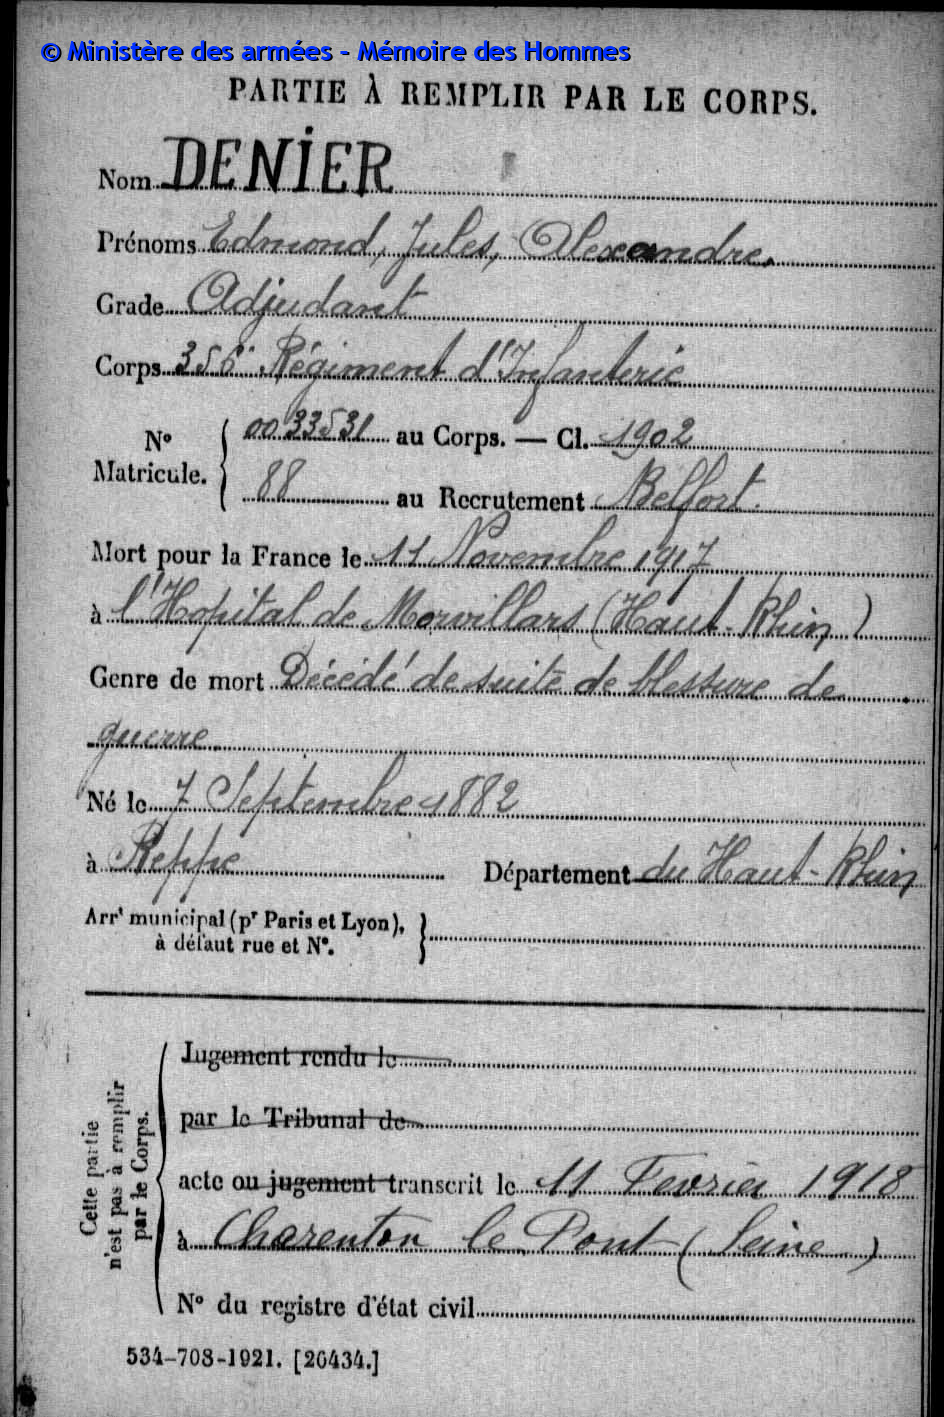 © Ministère des armées - Mémoire des Hommes
PARTIE À REMPLIR PAR LE CORPS.
Nom DENIER
Prénoms Edmond, Jules, Alexandre.
Grade Adjudant
Corps 356e Régiment d'Infanterie
N° Matricule. 0033531 au Corps. — Cl. 1902
88 au Recrutement Belfort.
Mort pour la France le 11 Novembre 1917
à l'Hopital de Morvillars (Haut-Rhin)
Genre de mort Décédé de suite de blessure de
guerre.
Né le 7 Septembre 1882
à Reppe Département du Haut-Rhin
Arrt municipal (pr Paris et Lyon),
à défaut rue et N°.
Cette partie n'est pas à remplir par le Corps.
Jugement rendu le
par le Tribunal de
acte ou jugement transcrit le 11 Fevrier 1918
à Charenton le Pont (Seine)
N° du registre d'état civil
534-708-1921. [26434.]